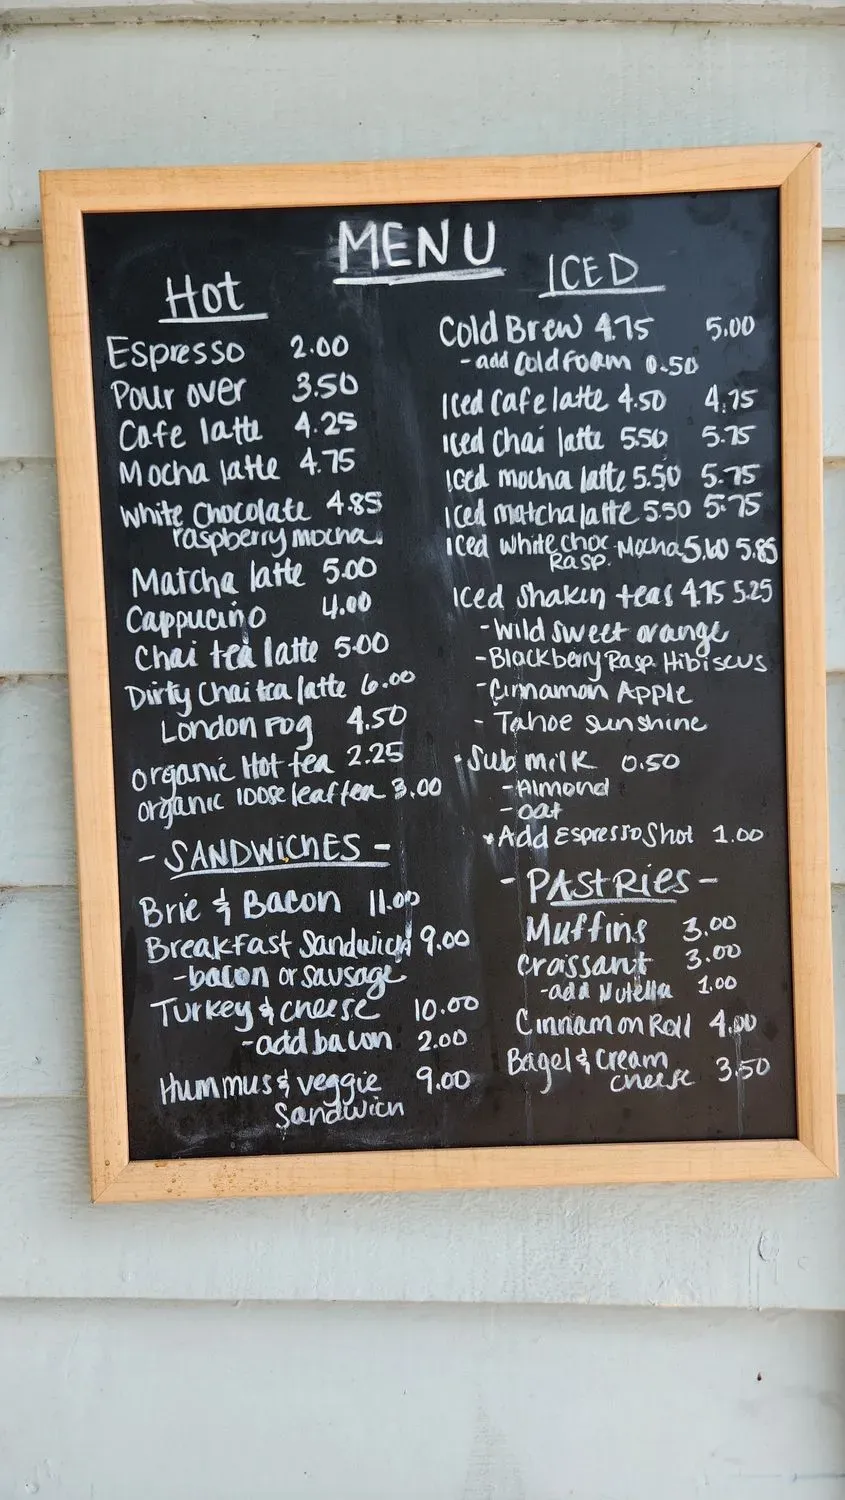 MENU
Hot
Espresso 2.00
Pour over 3.50
Cafe latte 4.25
Mocha latte 4.75
White Chocolate 4.85
raspberry mocha
Matcha latte 5.00
Cappucino 4.00
Chai tea latte 5.00
Dirty Chai tea latte 6.00
London Fog 4.50
organic Hot tea 2.25
organic loose leaf tea 3.00
- SANDWiCHES -
Brie & Bacon 11.00
Breakfast Sandwich 9.00
-bacon or sausage
Turkey & cheese 10.00
-add bacon 2.00
Hummus & veggie 9.00
Sandwich
ICED
Cold Brew 4.75 5.00
- add Cold foam 0.50
Iced Cafe latte 4.50 4.75
Iced Chai latte 5.50 5.75
Iced mocha latte 5.50 5.75
Iced matcha latte 5.50 5.75
Iced white choc Mocha 5.60 5.85
Rasp.
Iced Shaken teas 4.75 5.25
-Wild sweet orange
-Blackberry Rasp. Hibiscus
-Cinnamon Apple
- Tahoe sunshine
• Sub milk 0.50
-Almond
-oat
•Add Espresso Shot 1.00
- PAStRies -
Muffins 3.00
croissant 3.00
-add Nutella 1.00
Cinnamon Roll 4.00
Bagel & Cream
cheese 3.50